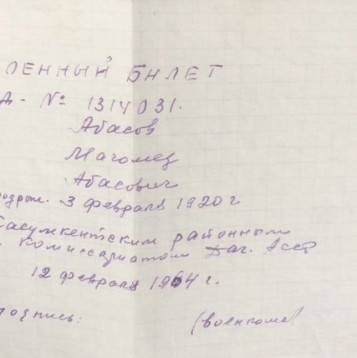 ЛЕННЫЙ БИЛЕТ
Д - № 1314031.
Абасов
Магомед
Абасович
рожд. 3 февраля 1920 г
Касумкентским районным
Комиссариатом Даг. АССР
12 февраля 1964 г.
подпись: (военкома)